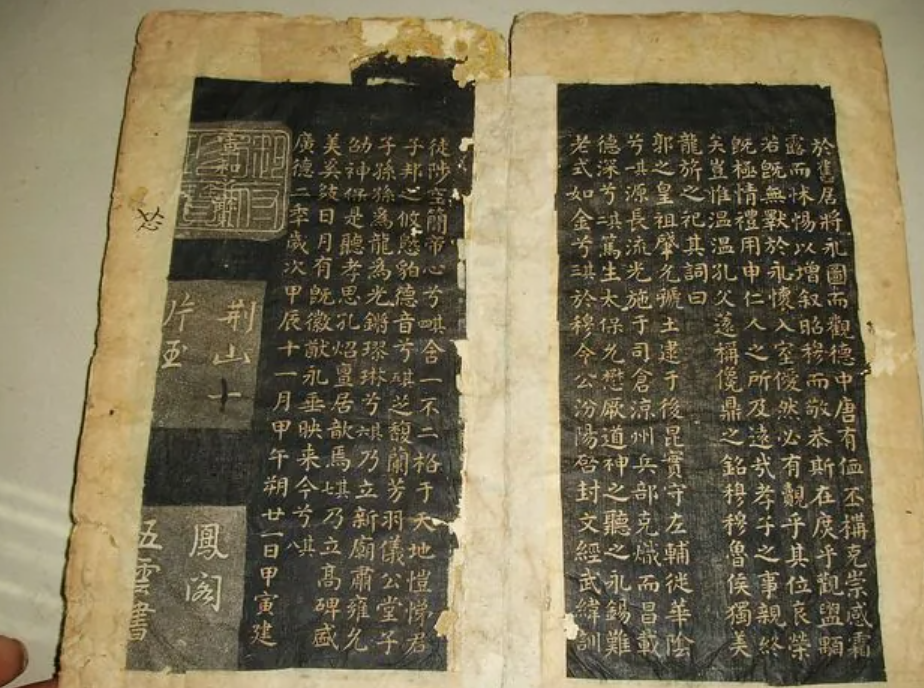 於舊居將永圖而觀德中唐有侐丕構克崇感霜
露而怵惕以增叙昭穆而敬恭斯在庶乎觀盥顒
若既無斁於永懷入室僾然必有覿乎其位哀榮
既極情禮用申仁人之所及遠哉孝子之事親終
矣豈惟溫溫孔父遠稱僎鼎之銘穆穆魯侯獨美
龍旂之祀其詞曰
郭之皇祖肇允虢土逮于後昆實守左輔徙華陰
兮其源長流光施于司倉涼州兵部克熾而昌載
德深兮其二篤生太保允懋厥道神之聽之永錫難
老式如金兮其三於穆令公汾陽啓封文經武緯訓
徒陟空簡帝心兮其四含一不二格于天地愷悌君
子邦之攸豹德音兮其芝馥蘭芳羽儀公堂子
子孫孫為龍為光鏘璆琳兮其六乃立新廟肅雍允
劭神保是聽孝思孔炤亶居歆焉其七乃立高碑盛
美奚斂日月有既徽猷永垂映来今兮其八
廣德二年歲次甲辰十一月甲午朔廿一日甲寅建
荆山
片玉
十
鳳閣
五雲書